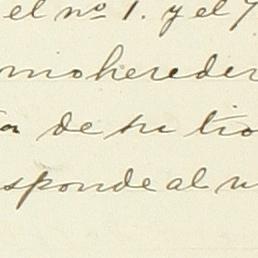 el nº 1. y el 7
mo hereder
de su tio
sponde al n